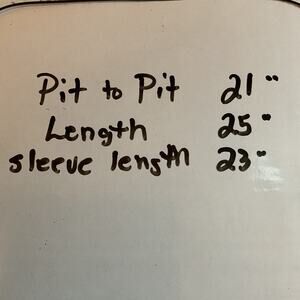 Pit to Pit 21"
Length 25"
sleeve length 23"